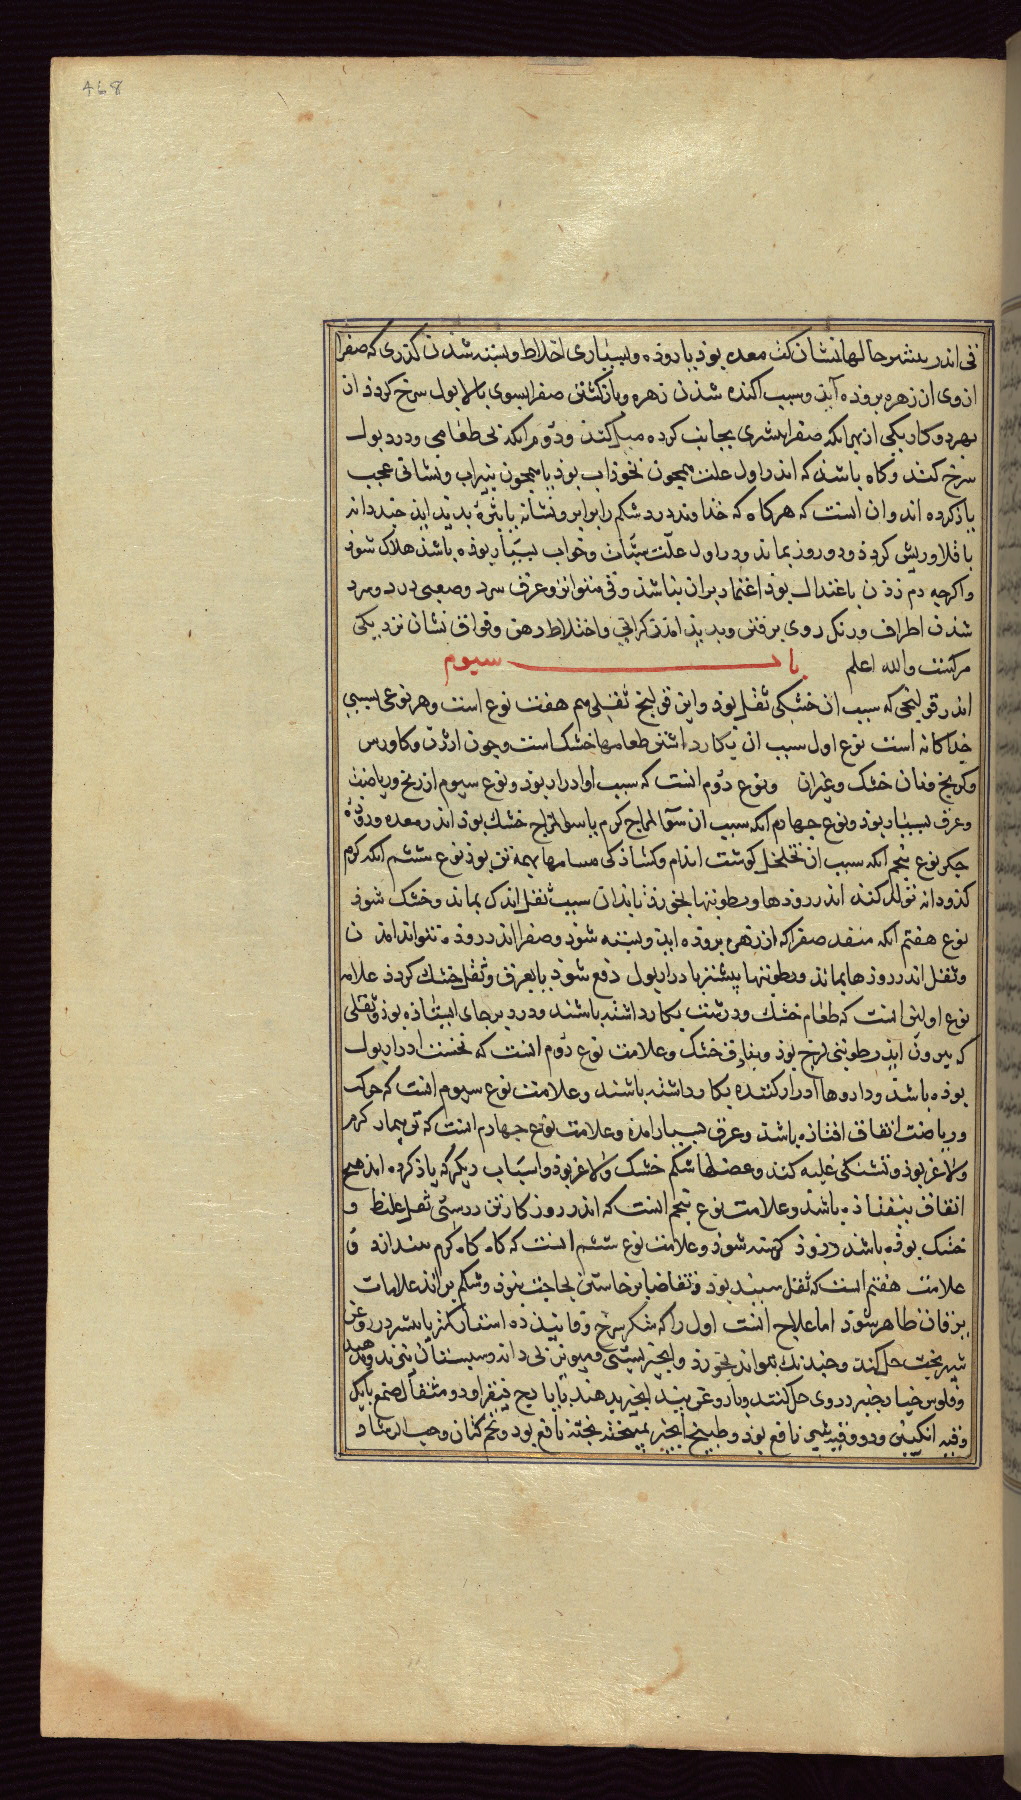 468
قی اندر بیشتر حالها نشان کفت معده بوذ یا روذه و بسیاری اخلاط و بسته شذن کذری که صفرا
از وی از زهره بروذه آیذ و سبب آکنده شذن زهره و باز کشتن صفرا بسوی بالا بول سرخ کردذ از
بهر دو کار یکی از بهر آنکه صفرا بیشتری بجانب کرده میل کند و دوم آنکه بی طعامی و درد بول
سرخ کند و کاه باشذ که اندر اول علت همچون نخوذاب بوذ یا همچون پنیراب و نشانی عجب
یاذ کرده اند و ان انست که هرکاه که خذاوند درد شکم را بر ابرو نشانه یا بثرهٔ بدید ایذ چند دانه
باقلا و ریش کردذ و دو روز بماند و در اول علت سبات و خواب بسیار بوذه باشذ هلاک شوذ
و اکرچه دم زذن باعتدال بوذ اعتماد بران نباشذ و قی متواتر و عرق سرد و صعبی درد و سرد
شذن اطراف و رنک روی برفتن و بدیذ امذن کرانی و اختلاط ذهن و فواق نشان نزدیکی
مرکست والله اعلم باب سیوم
اندر قولنجی که سبب ان خشکی ثفل بوذ و این قولنج ثفلی هم هفت نوع است و هر نوعی بسببی
جذاکانه است نوع اول سبب ان بکار داشتن طعامها خشک است و چون ارزن و کاورس
و کرنج و نان خشک و غیر ان و نوع دوم انست که سبب او ادرار بوذ و نوع سیوم از رنج و ریاضت
و عرق بسیار بوذ و نوع چهارم انکه سبب ان سوء المزاج کرم یا سوء المزاج خشک بوذ اندر معده و روذه
جکر نوع پنجم انکه سبب ان تخلخل کوشت اندام و کشاذکی مسامها همه تن بوذ نوع ششم انکه کرم
کذودانه تولد کند اندر روذها و رطوبتها بخورذ بذان سبب ثفل اندک بماند و خشک شوذ
نوع هفتم انکه منفذ صفرا که از زهره بروذه ایذ و بسته شوذ و صفرا اندر روذه نتواند امذن
و ثفل اندر روذها بماند و رطوبتها بیشتر بادرار بول دفع شوذ یا بعرق و ثفل خشک کردذ علامت
نوع اولین انست که طعام خشک و درشت بکار داشته باشند و درد بر جای ایستاذه بوذ و ثفلی
که بیرون ایذ رطوبتی لزج بوذ و بنادق خشک و علامت نوع دوم انست که نخست ادرار بول
بوذه باشذ و داروها ادرار کننده بکار داشته باشند و علامت نوع سیوم انست که حرکت
و ریاضت اتفاق افتاذه باشذ و عرق بسیار امذه و علامت نوع چهارم انست که تن بیمار کرم
و لاغر بوذ و تشنکی غلبه کند و عضلها شکم خشک و لاغر بوذ و اسباب دیکر که یاذ کرده امذ هیچ
اتفاق نیفتاذه باشذ و علامت نوع پنجم انست که اندر روزکار تن درستی ثفل غلیظ و
خشک بوذه باشذ و زوذ کرسنه شوذ و علامت نوع ششم انست که کاه کاه کرم می اندازد و
علامت هفتم انست که ثفل سپید بوذ و تقاضا برخاستن بحاجت نبوذ و شکم براند علامات
یرقان ظاهر شوذ اما علاج انست اول را که شکر سرخ و فانیذ ده استار کنز یا بیشتر در روغن
شیرپخت حل کند و چندانک بتواند بخورذ و انجیر بستی و مویز بی دانه و سپستان بپزند و بدهند
و فلوس خیارچنبر در وی حل کنند و با روغن بید انجیر بدهند یا ایارج فیقرا و دو مثقال صمغ با یک
وقیه انکبین و دو وقیه شیر نافع بوذ و طبیخ انجیر پخته نافع بوذ و تخم کتان و حب الرشاد